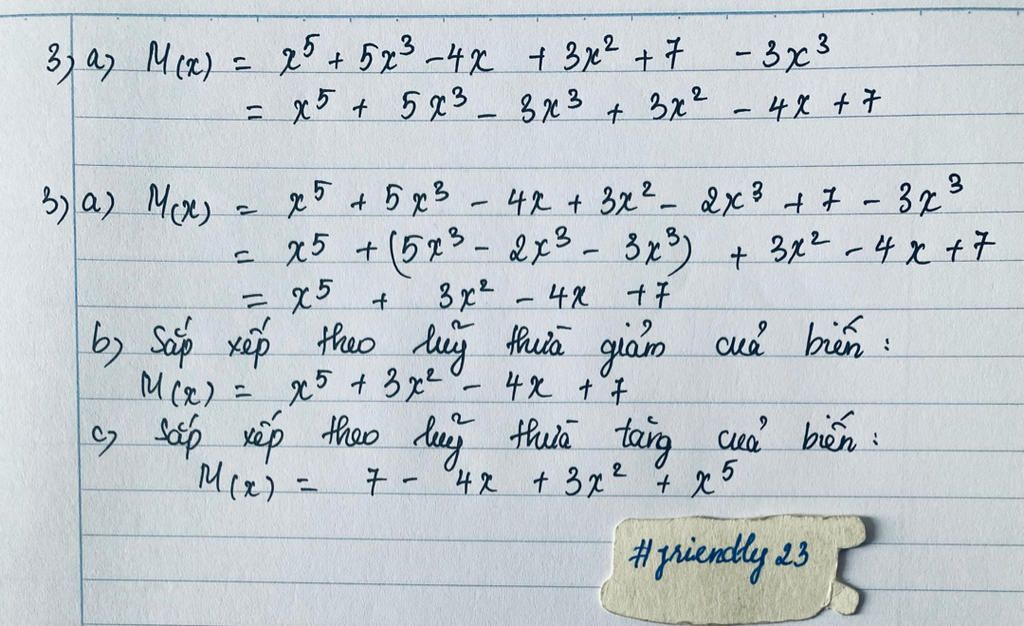 3) a) M(x) = x⁵ + 5x³ - 4x + 3x² + 7 - 3x³
= x⁵ + 5x³ - 3x³ + 3x² - 4x + 7
3) a) M(x) = x⁵ + 5x³ - 4x + 3x² - 2x³ + 7 - 3x³
= x⁵ + (5x³ - 2x³ - 3x³) + 3x² - 4x + 7
= x⁵ + 3x² - 4x + 7
b) Sắp xếp theo luỹ thừa giảm của biến :
M(x) = x⁵ + 3x² - 4x + 7
c) Sắp xếp theo luỹ thừa tăng của biến :
M(x) = 7 - 4x + 3x² + x⁵
#friendly 23